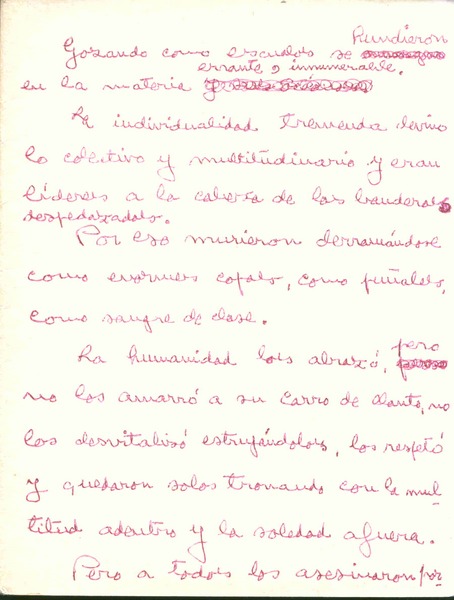 hundieron
Gozando como escudos se
errante o innumerable.
en la materia
La individualidad tremenda devino
lo colectivo y multitudinario y eran
líderes a la cabeza de las banderas
despedazadas.
Por eso murieron derramándose
como enormes copas, como puñales,
como sangre de clase.
La humanidad los abrazó, pero
no los amarró a su carro de llanto, no
los desvitalizó estrujándolos, los respetó
y quedaron solos tronando con la mul-
titud adentro y la soledad afuera.
Pero a todos los asesinaron por